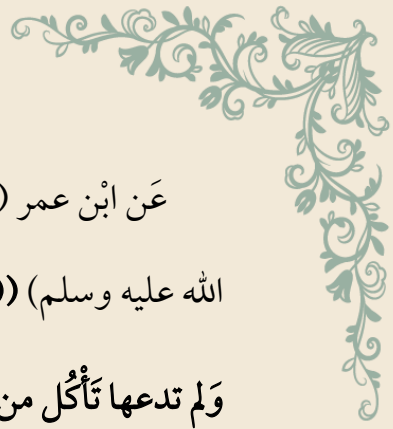 عَن ابْن عمر (
الله عليه وسلم) ((
وَلم تدعها تَأْكُل من